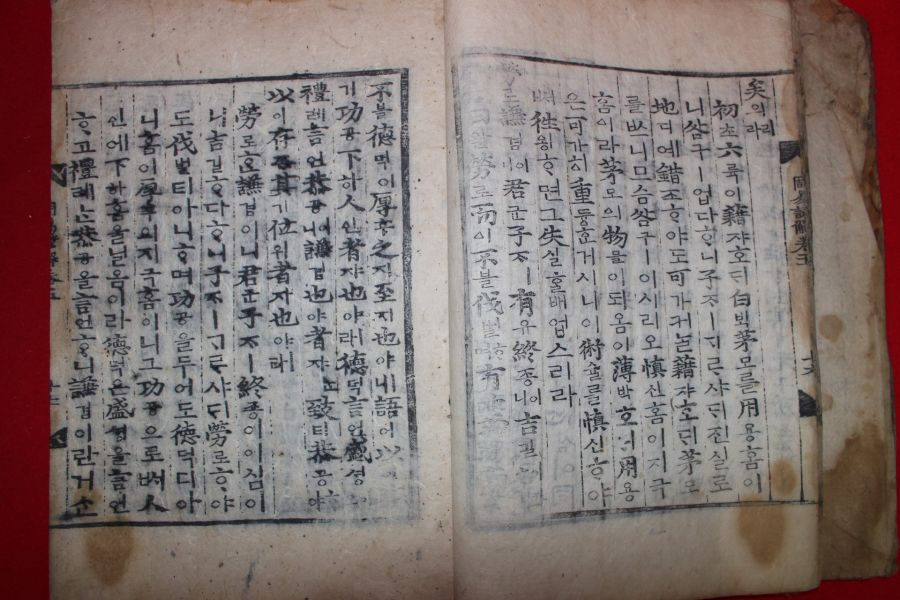 矣의리라
初초六륙이藉쟈호ᄃᆡ白ᄇᆡᆨ茅모ᄅᆞᆯ用용홈이
니咎구ㅣ업다ᄒᆞ니子ᄌᆞㅣᄀᆞᄅᆞ샤ᄃᆡ진실로
地디예錯조ᄒᆞ야도可가커ᄂᆞᆯ藉쟈호ᄃᆡ茅모
ᄅᆞᆯᄡᅳ니므슴咎구ㅣ이시리오慎신홈이지극
홈이라茅모의物믈이되옴이薄박호ᄃᆡ用용
은可가히重듕ᄒᆞᆫ거시니이術슐을慎신ᄒᆞ야
ᄡᅥ往왕ᄒᆞ면그失실ᄒᆞᆯ배업스리라
勞로謙겸이니君군子ᄌᆞㅣ有유終죵이니吉길
曰왈勞로而이不블伐벌有
周易諺解卷五
不블德덕이厚후之지至지也야ㅣ니語어以
기功공下하人인者쟈也야ㅣ라德덕言언盛셩
禮례言언恭공이니謙겸也야者쟈致티恭공ᄒᆞ야
以이存존其기位위者쟈也야ㅣ라
勞로ᄒᆞᆫ謙겸이니君군子ᄌᆞㅣ終죵이이심이
니吉길ᄒᆞ다ᄒᆞ니子ᄌᆞㅣᄀᆞᄅᆞ샤ᄃᆡ勞로ᄒᆞ야
도伐벌티아니ᄒᆞ며功공을두어도德덕디아
니홈이厚후의지극홈이니그功공으로ᄡᅥ人
인에下하홈을닐옴이라德덕은盛셩을言언
ᄒᆞ고禮례ᄂᆞᆫ恭공을言언ᄒᆞ니謙겸이란거슨